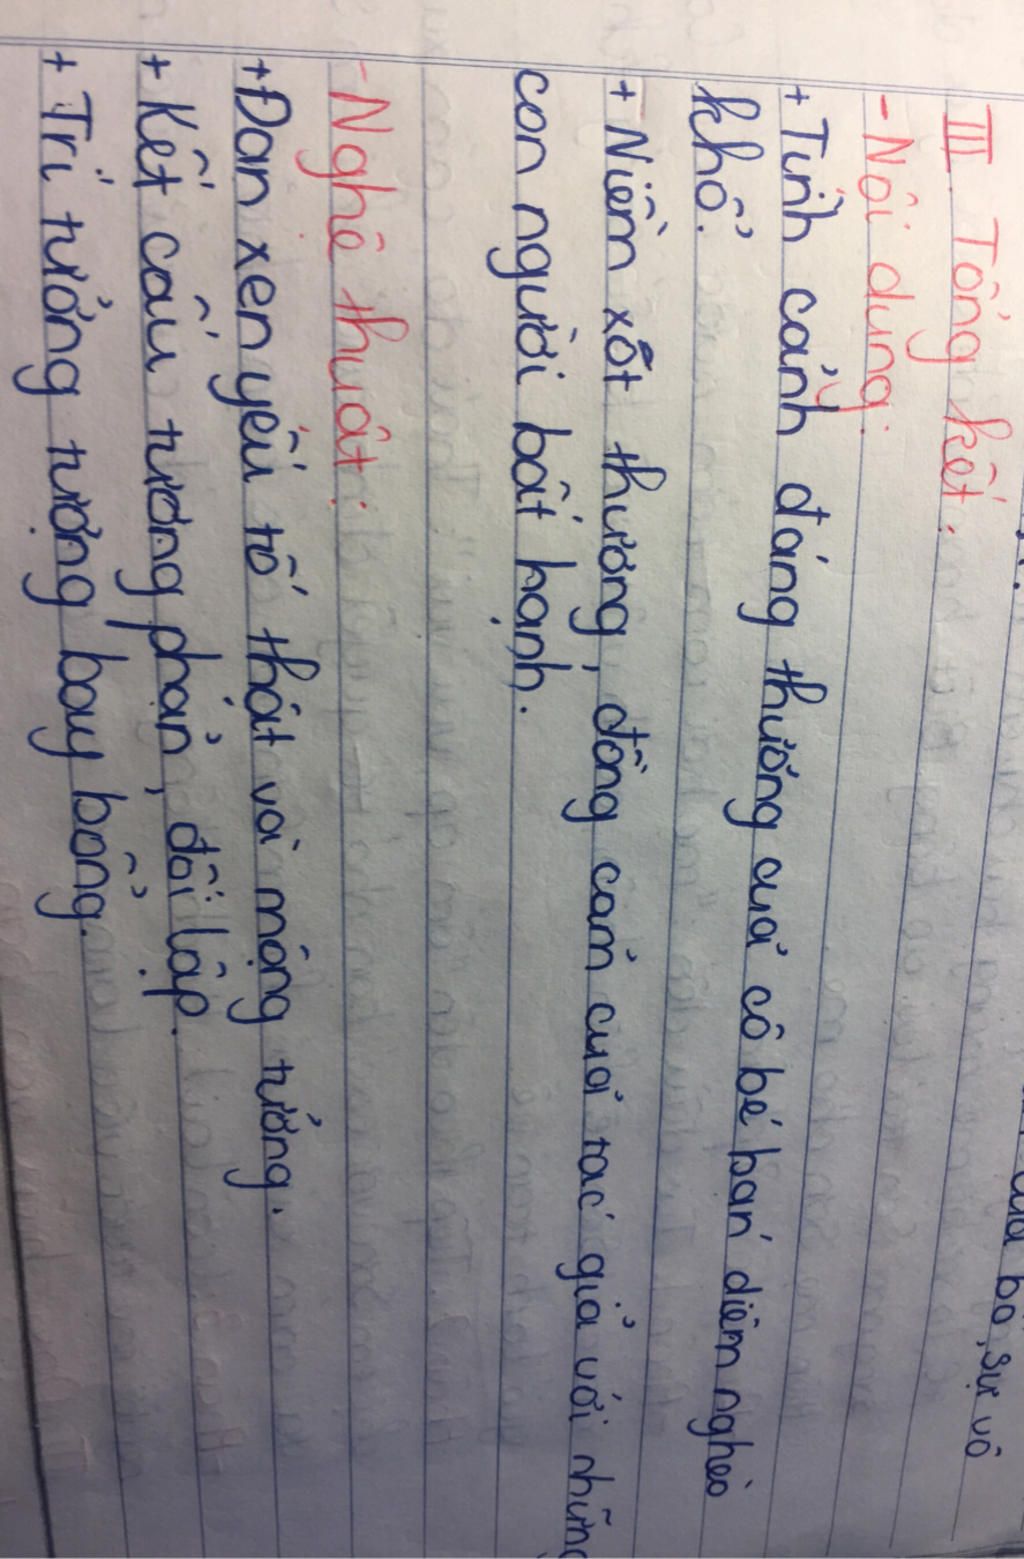 của bố, sự vô
III. Tổng kết.
- Nội dung:
+ Tình cảnh đáng thương của cô bé bán diêm nghèo
khổ.
+ Niềm xót thương, đồng cảm của tác giả với những
con người bất hạnh.
- Nghệ thuật:
+ Đan xen yếu tố thật và mộng tưởng.
+ Kết cấu tương phản, đối lập.
+ Trí tưởng tượng bay bổng.